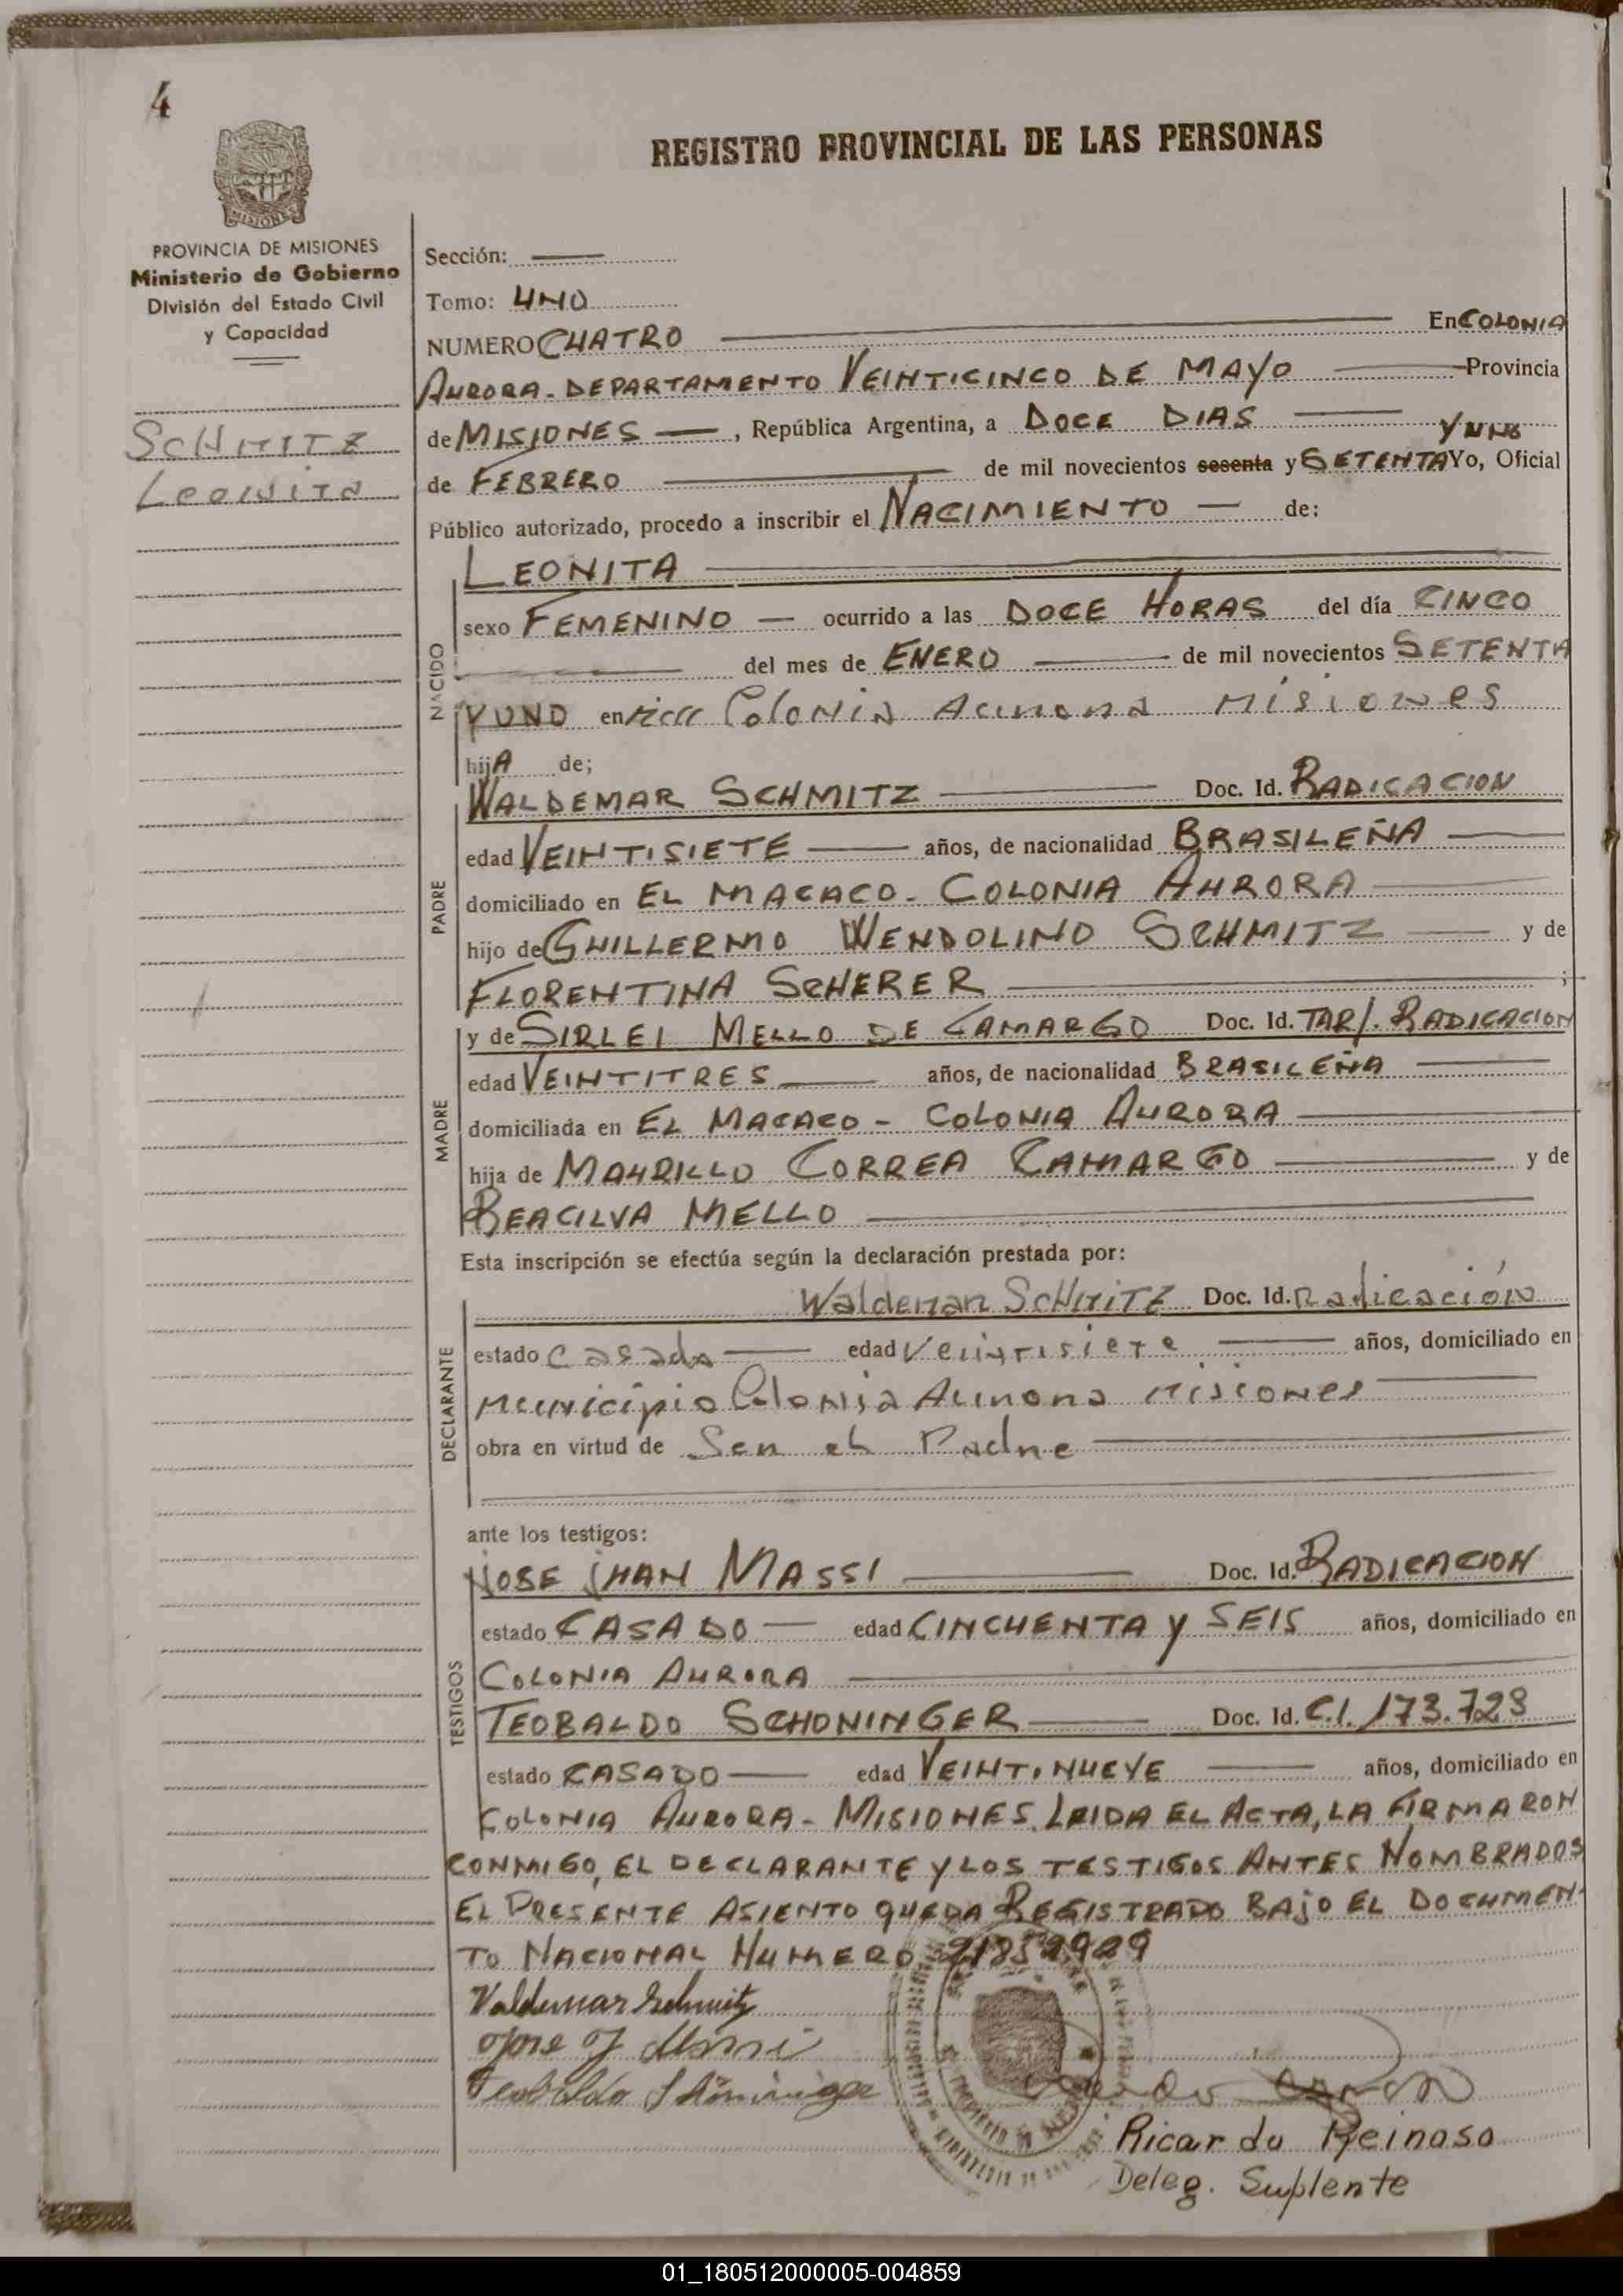 4
REGISTRO PROVINCIAL DE LAS PERSONAS
MISIONES
PROVINCIA DE MISIONES
Ministerio de Gobierno
División del Estado Civil
y Capacidad
SCHMITZ
Leonita
Sección:
Tomo: UNO
NUMERO CUATRO En COLONIA
AURORA - DEPARTAMENTO VEINTICINCO DE MAYO Provincia
de MISIONES , República Argentina, a DOCE DIAS
Y UNO
de FEBRERO de mil novecientos sesenta y SETENTA Yo, Oficial
Público autorizado, procedo a inscribir el NACIMIENTO de:
NACIDO
LEONITA
sexo FEMENINO ocurrido a las DOCE HORAS del día CINCO
del mes de ENERO de mil novecientos SETENTA
Y UNO en Colonia Aurora Misiones
hijA de;
PADRE
WALDEMAR SCHMITZ Doc. Id. RADICACION
edad VEINTISIETE años, de nacionalidad BRASILEÑA
domiciliado en EL MACACO - COLONIA AURORA
hijo de GUILLERMO WENDOLINO SCHMITZ y de
FLORENTINA SCHERER ;
MADRE
y de SIRLEI MELLO DE CAMARGO Doc. Id. TAR/. RADICACION
edad VEINTITRES años, de nacionalidad BRASILEÑA
domiciliada en EL MACACO - COLONIA AURORA
hija de MAURILLO CORREA CAMARGO y de
BEACILVA MELLO
Esta inscripción se efectúa según la declaración prestada por:
DECLARANTE
Waldemar SCHMITZ Doc. Id. Radicación
estado Casado edad Veintisiete años, domiciliado en
Municipio Colonia Aurora Misiones
obra en virtud de Ser el Padre
ante los testigos:
TESTIGOS
JOSE JUAN MASSI Doc. Id. RADICACION
estado CASADO edad CINCUENTA Y SEIS años, domiciliado en
COLONIA AURORA
TEOBALDO SCHONINGER Doc. Id. C.I. 173.729
estado CASADO edad VEINTINUEVE años, domiciliado en
COLONIA AURORA - MISIONES. LEIDA EL ACTA, LA FIRMARON
CONMIGO, EL DECLARANTE Y LOS TESTIGOS ANTES NOMBRADOS
EL PRESENTE ASIENTO QUEDA REGISTRADO BAJO EL DOCUMEN-
TO NACIONAL NUMERO 21852929
Valdemar Schmitz
Jose J Massi
Teobaldo Schöninger
Ricardo Reinoso
Deleg. Suplente
01_180512000005-004859